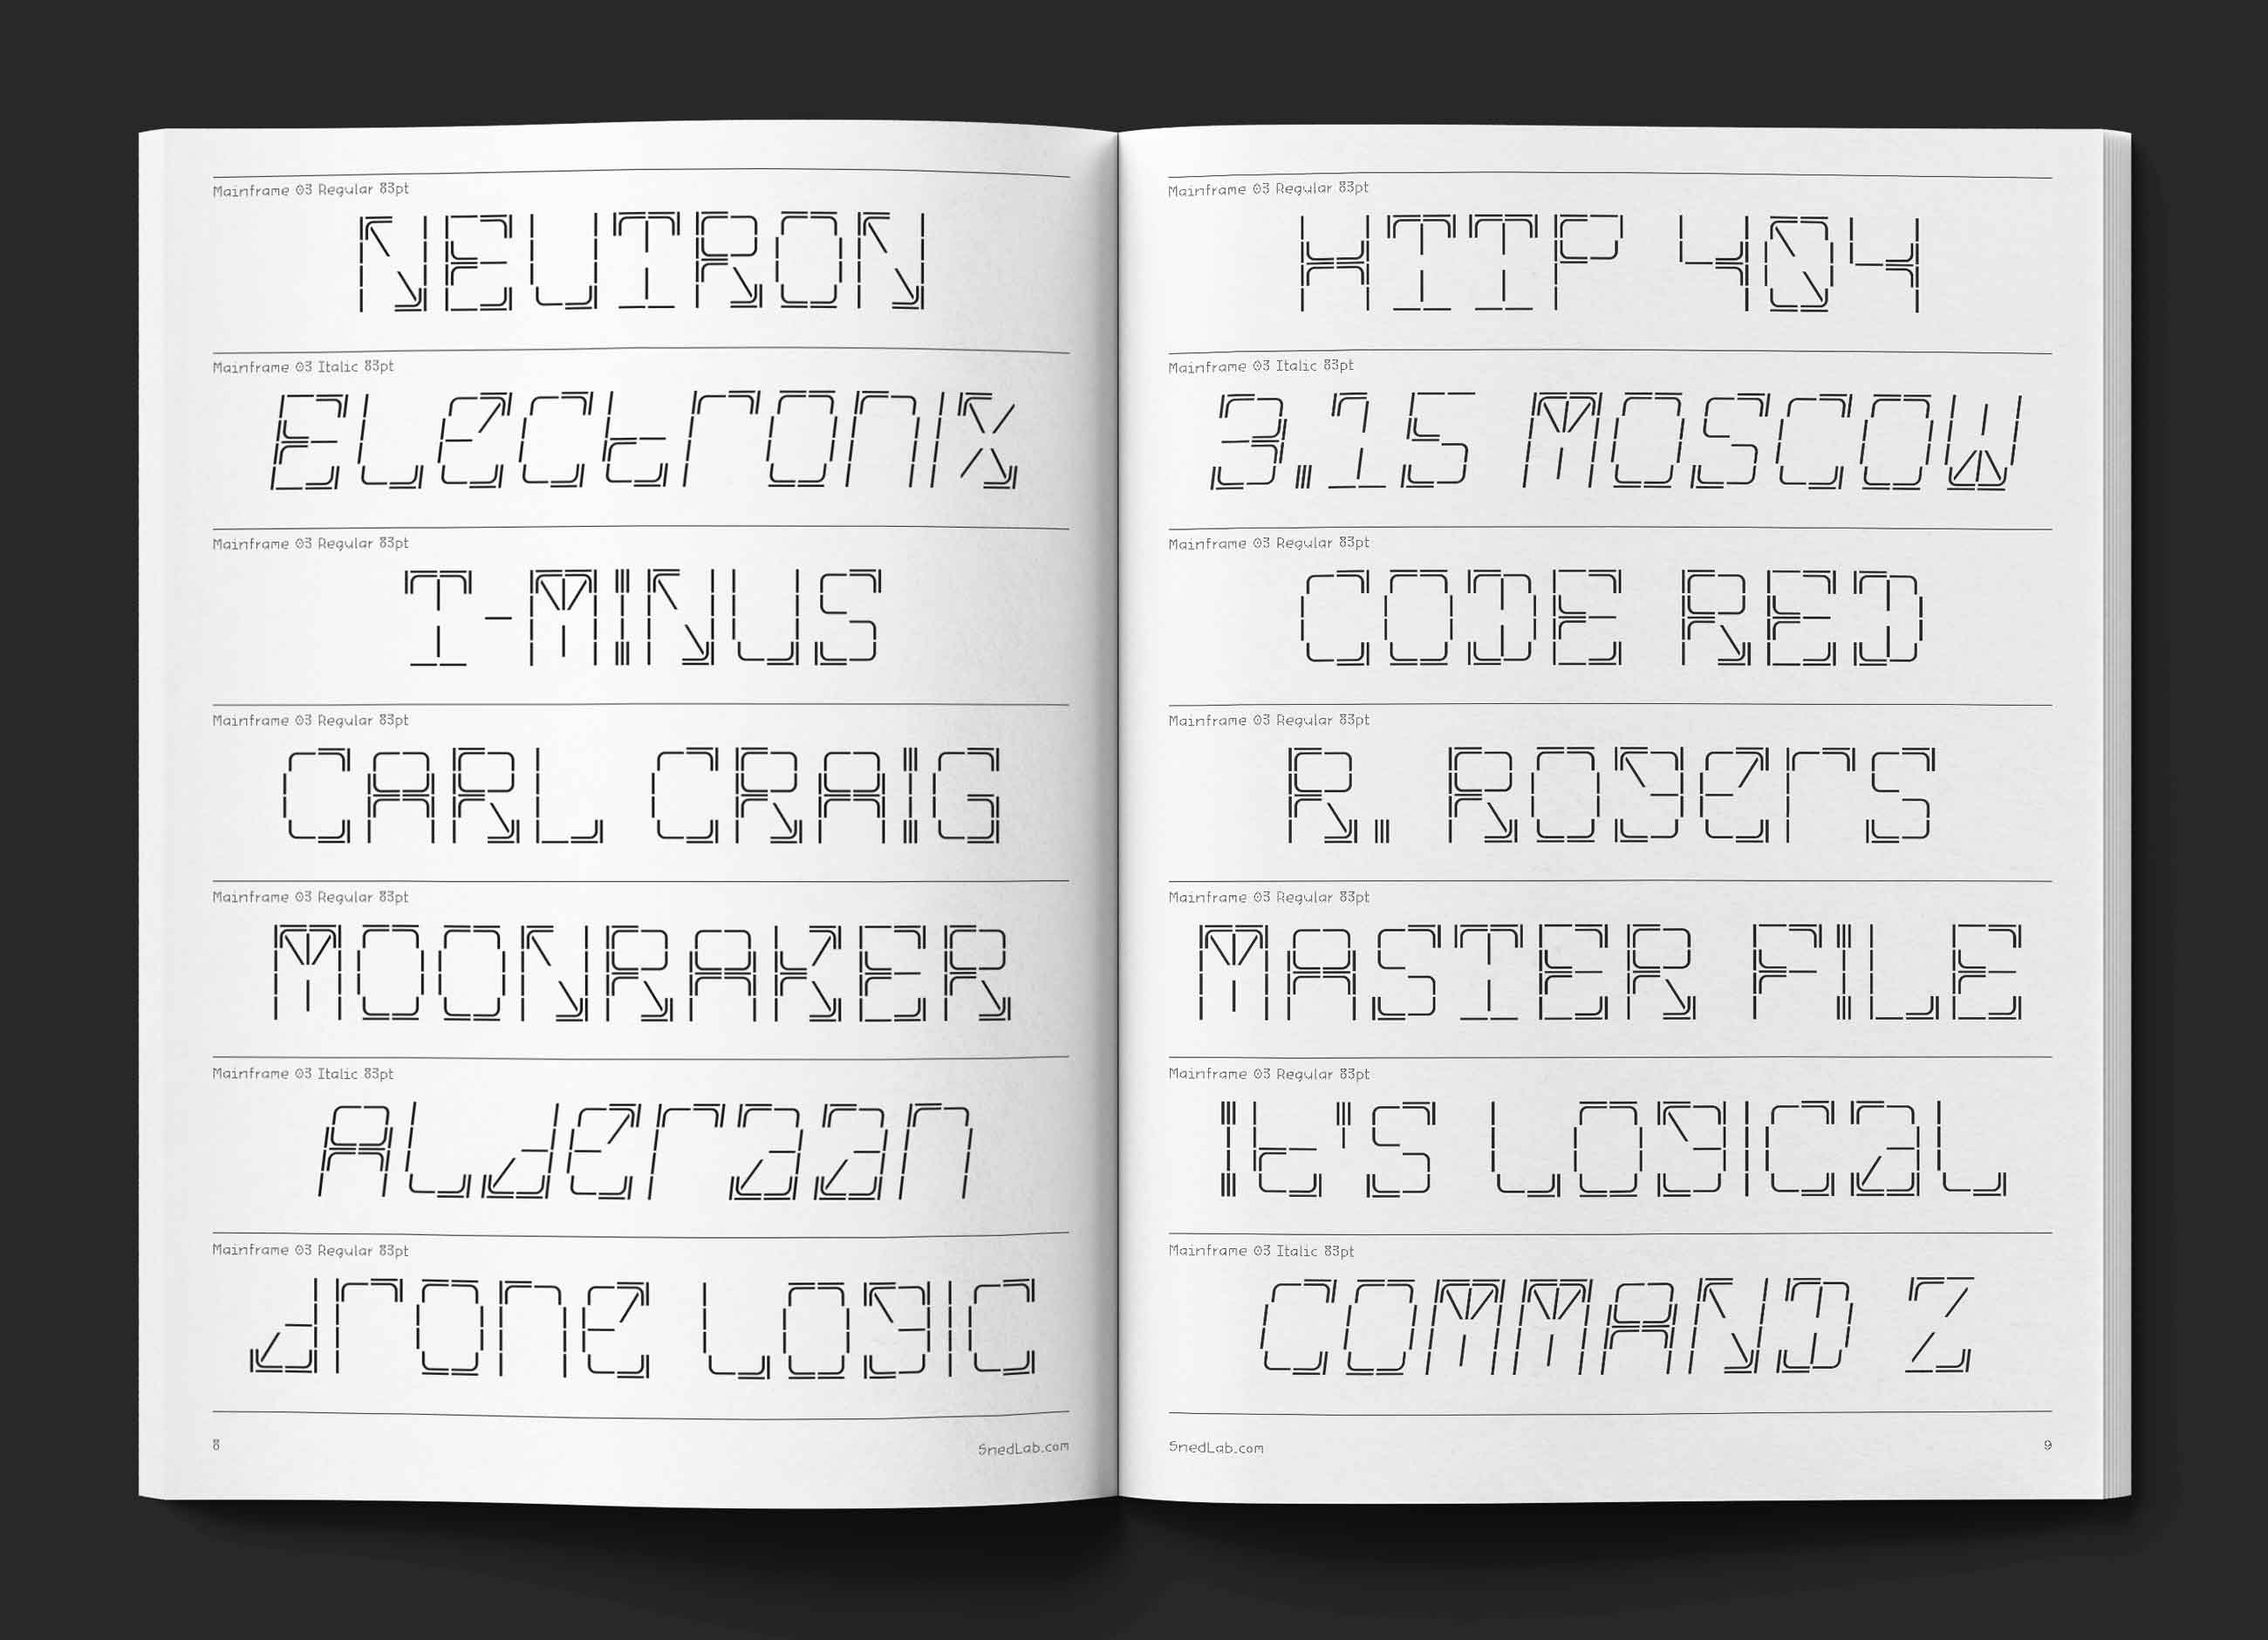 Mainframe 03 Regular 83pt
NEUTRON
Mainframe 03 Italic 83pt
Electronix
Mainframe 03 Regular 83pt
T-MINUS
Mainframe 03 Regular 83pt
CARL CRAIG
Mainframe 03 Regular 83pt
MOONRAKER
Mainframe 03 Italic 83pt
Alderaan
Mainframe 03 Regular 83pt
drone logic
8
SnedLab.com
Mainframe 03 Regular 83pt
HTTP 404
Mainframe 03 Italic 83pt
3.15 MOSCOW
Mainframe 03 Regular 83pt
CODE RED
Mainframe 03 Regular 83pt
R. Rogers
Mainframe 03 Regular 83pt
MASTER FILE
Mainframe 03 Regular 83pt
It's logical
Mainframe 03 Italic 83pt
COMMAND Z
SnedLab.com
9